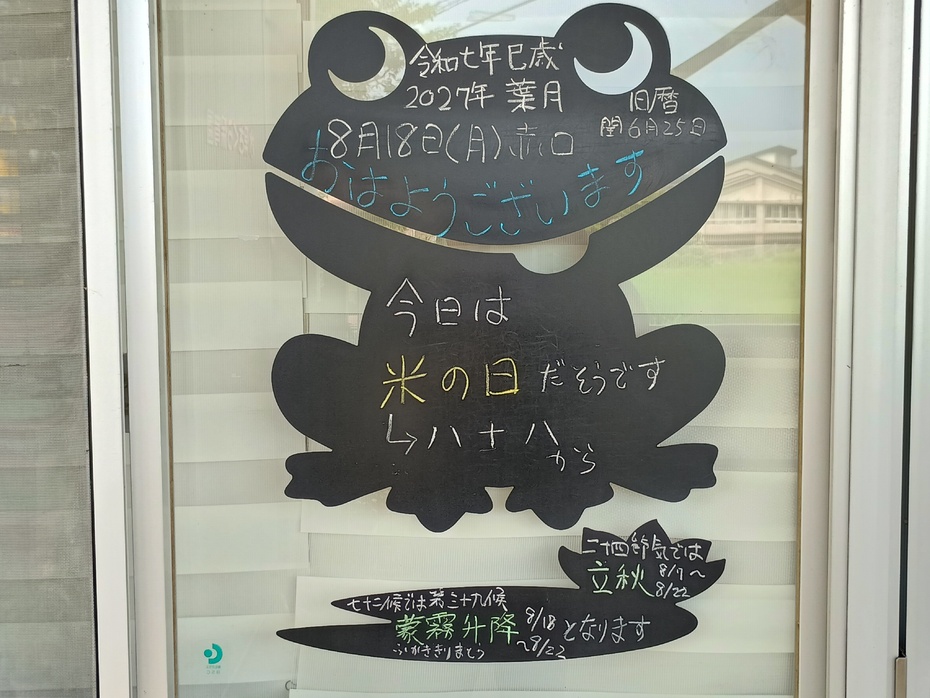 令和七年巳歳
2027年 葉月
旧暦
閏6月25日
8月18日(月)赤口
おはようございます
今日は
米の日だそうです
↳八十八
から
二十四節気では
立秋 8/7〜
8/22
七十二候では第三十九候
蒙霧升降 8/18
〜8/22 となります
ふかききりまとう